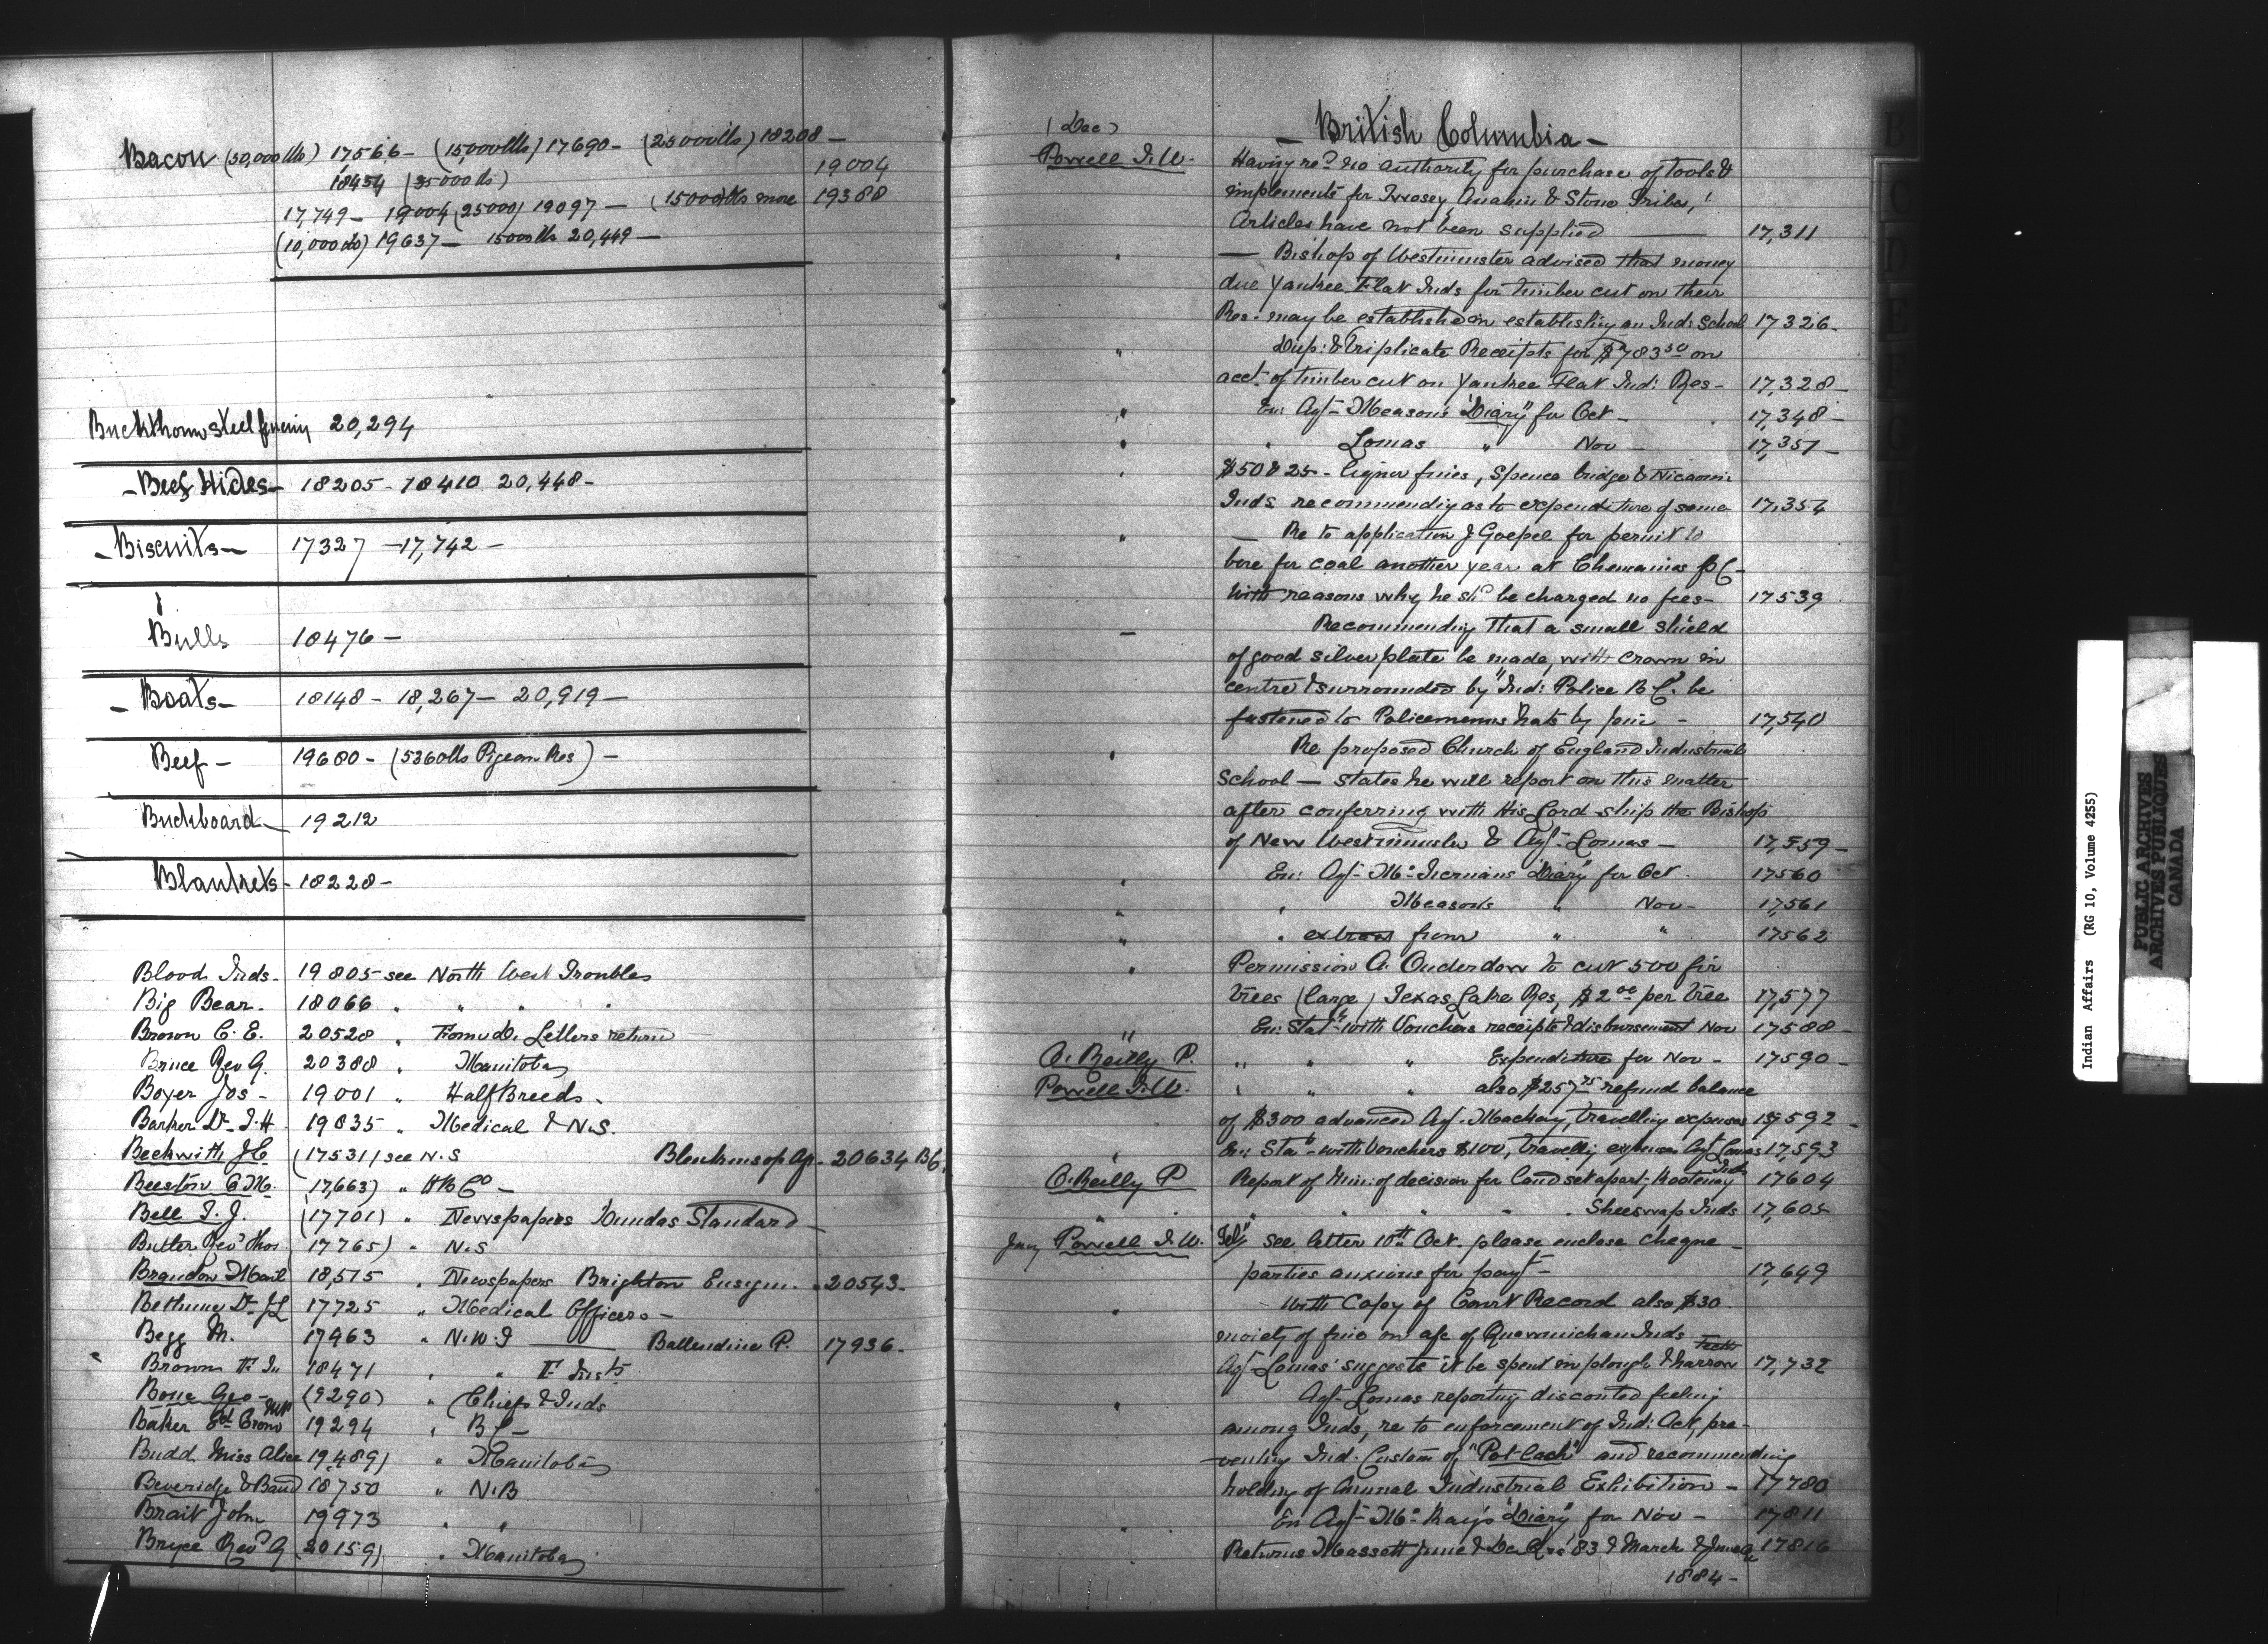 Bacon (30,000 lbs) 17566 - (15,000 lbs) 17690 - (25000 lbs) 18208 -
18454 (35000 lb) 19004
17,749 - 19004 (25000) 19097 - (15000 lbs more 19388
(10,000 lb) 19637 - 15000 lb 20,449 -
Buckthorn steel fencing 20,294
- Beef Hides - 18205 - 18410 20,448 -
- Biscuits - 17327 - 17,742 -
Bulls 18476 -
- Boats - 18148 - 18,267 - 20,919 -
Beef - 19680 - (5360 lbs Pigeon Res) -
Buckboard - 19212
Blankets - 18228 -
Blood Inds - 19805 - see North West Troubles
Big Bear - 18066 " " " "
Brown C. E. 20528 " Letters return
Bruce Rev G. 20388 " Manitoba
Boyer Jos - 19001 " Half Breeds -
Barker Dr J. H 19835 " Medical & N.S.
Beckwith J C (17531) see N.S Blenkinsop Ag - 20634 BC
Beeston C M. (17,663) " H B Co -
Bell J. J. (17701) " Newspapers Dundas Standard -
Butler Revd Thos (17765) " N.S
Brandon Mail 18,515 " Newspapers Brighton Ensign " 20543 -
Bethune Dr J L 17725 " Medical Officers -
Begg M. 17963 " N.W.T Ballendine P. 17936 -
Brown 18471 " " F Insts
Geo - (9290) " Chiefs & Inds
Baker Edd Crow MP 19294 " B C -
Budd Miss Alice 19,489) " Manitoba
Beveridge & Baird 18750 " N.B
Brait John 19973 " "
Bryce Revd G (20159) " Manitoba
(Dec) - British Columbia -
Powell I. W. Having recd no authority for purchase of tools &
implements for Toosey, Anahim & Stone Tribes,
Articles have not been supplied 17,311
" - Bishop of Westminster advised that money
due Yankee Flat Inds for timber cut on their
Res. may be established in establishing an Ind: School 17326 -
" Dup: & Triplicate Receipts for $783 50 on
acct of timber cut on Yankee Flat Ind: Res - 17,328 -
" En: Agt Meason's "Diary" for Oct - 17,348 -
" " Lomas " Nov - 17,351 -
" $50 & 25 - liquor fines, Spence bridge & Nicaomin
Inds recommending as to expenditure of same 17,354
" - Re to application J Goepel for permit to
bore for coal another year at Chemainus B C -
with reasons why he shd be charged no fees - 17539
- Recommending that a small shield
of good silver plate be made, with crown in
centre & surrounded by "Ind: Police B C." be
fastened to Policemen's hats by pin - 17,540
" Re proposed Church of England Industrial
School - states he will report on this matter
after conferring with His Lord-ship the Bishop
of New Westminster & Agt - Lomas - 17,559 -
" En: Agt - McTiernan's "Diary" for Oct - 17560
" " Meason's " Nov - 17,561
" " extract from " " 17562
" Permission A. Onderdonk to cut 500 fir
trees (large) Texas Lake Res, $2 00 per tree 17,577
" En: Stat with Vouchers receipts & disbursement Nov 17588 -
O. Reilly P. " " " Expenditure for Nov - 17590 -
Powell I. W. " " " also $257 75 refund balance
of $300 advanced Agt Mackay, travelling expenses 17592 -
" En: Stat - with Vouchers $100, travelling expenses Agt Lomas 17,593
O. Reilly P Report of Min: of decision for land set apart, Kootenay Inds 17604
" " " " " Sheeswap Inds 17,605
Jany Powell I. W. "Tel" see letter 10th Oct. please enclose cheque -
parties anxious for payt - 17,649
" - With Copy of Court Record also $30
moiety of fine on a/c of Quamichan Inds
Agt Lomas suggests it be spent in plough & harrow teeth 17,732
" Agt - Lomas reporting disconted feeling
among Inds, re to enforcement of Ind: Act, pre-
venting Ind. Custom of "Pot-lach" and recommending
holding of Annual Industrial Exhibition - 17780
" En Agt - McKay's "Diary" for Nov - 17811
Returns Massett June & Dec Qrs '83 & March & June Qr 17816
1884 -
Indian Affairs (RG 10, Volume 4255)
PUBLIC ARCHIVES
ARCHIVES PUBLIQUES
CANADA